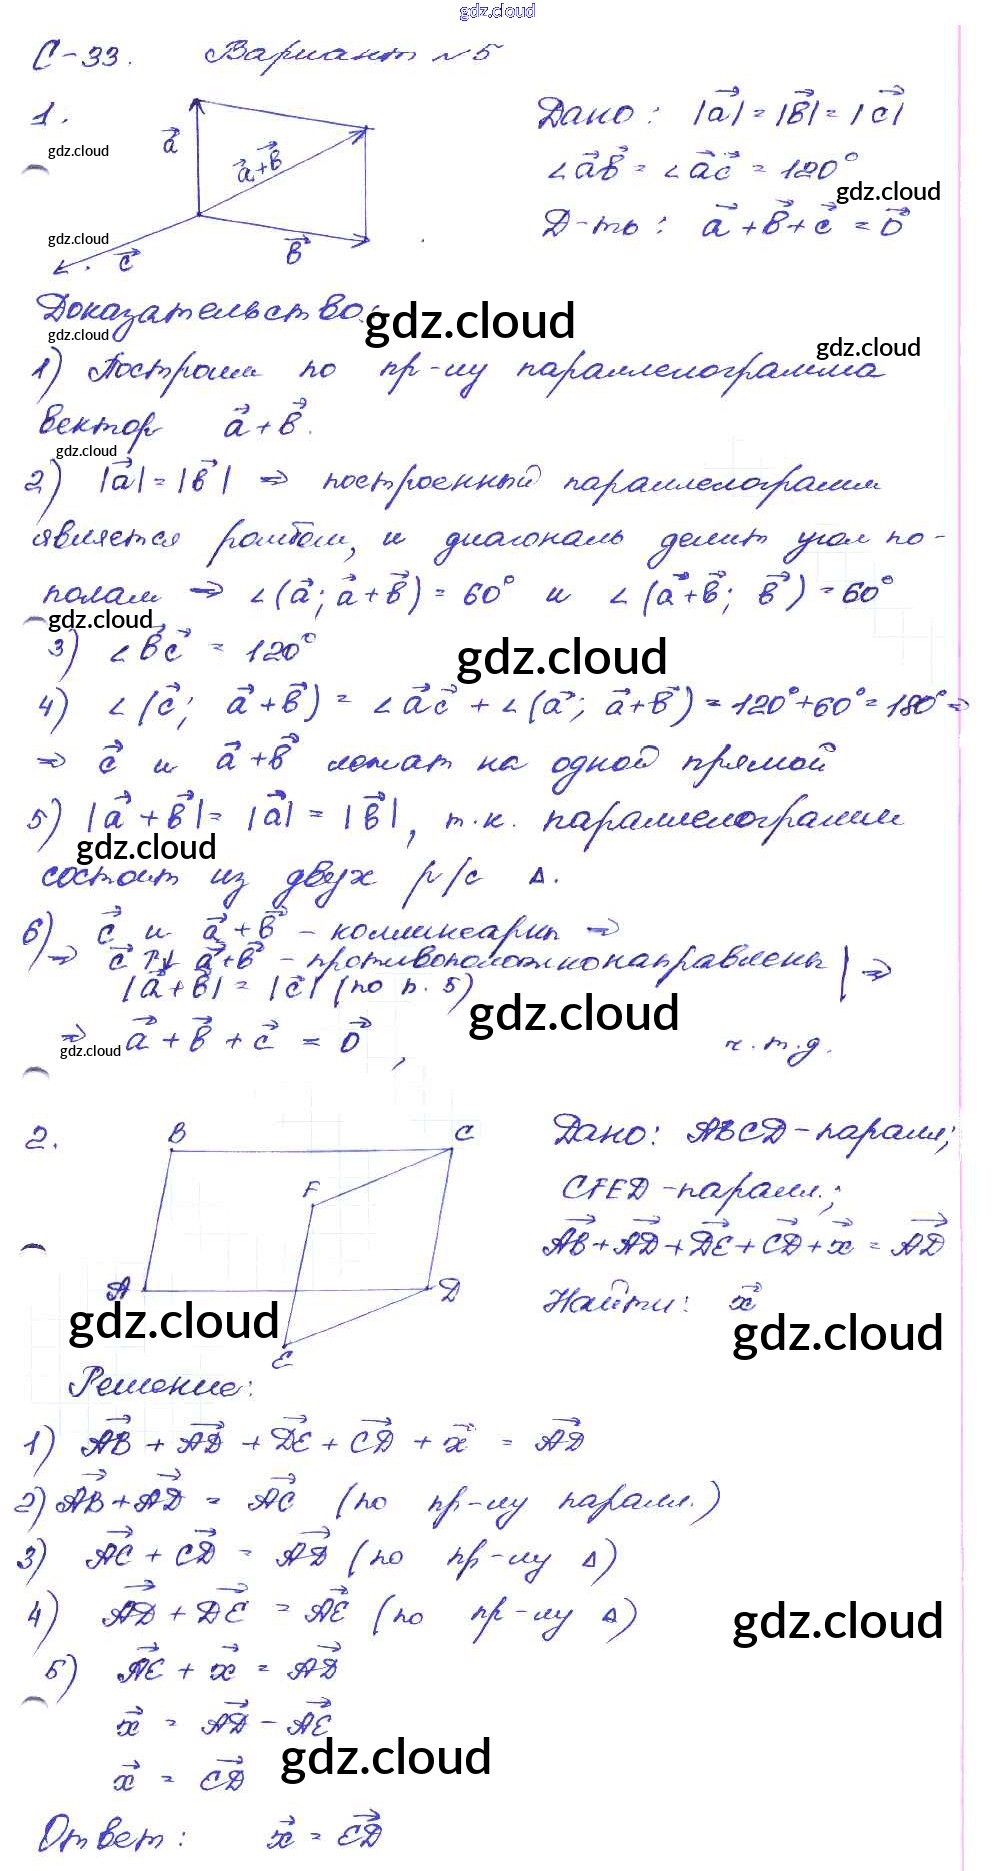 gdz.cloud
С-33. Вариант №5
1. a⃗ a⃗+b⃗ b⃗ c⃗
Дано: |a⃗| = |b⃗| = |c⃗|
∠a⃗b⃗ = ∠a⃗c⃗ = 120°
Д-ть: a⃗ + b⃗ + c⃗ = 0⃗
gdz.cloud
gdz.cloud
gdz.cloud
Доказательство:
gdz.cloud
gdz.cloud
gdz.cloud
1) Построим по пр-лу параллелограмма
вектор a⃗ + b⃗.
gdz.cloud
2) |a⃗| = |b⃗| ⇒ построенный параллелограмм
является ромбом, и диагональ делит угол по-
полам ⇒ ∠(a⃗; a⃗+b⃗) = 60° и ∠(a⃗+b⃗; b⃗) = 60°
gdz.cloud
3) ∠b⃗c⃗ = 120°
gdz.cloud
4) ∠(c⃗; a⃗+b⃗) = ∠a⃗c⃗ + ∠(a⃗; a⃗+b⃗) = 120°+60° = 180° ⇒
⇒ c⃗ и a⃗+b⃗ лежат на одной прямой
5) |a⃗+b⃗| = |a⃗| = |b⃗|, т.к. параллелограмм
gdz.cloud
состоит из двух р/с Δ.
6) c⃗ и a⃗+b⃗ - коллинеарны ⇒
⇒ c⃗ ↑↓ a⃗+b⃗ - противоположнонаправлены | ⇒
|a⃗+b⃗| = |c⃗| (по п. 5)
gdz.cloud
⇒ a⃗ + b⃗ + c⃗ = 0⃗, ч.т.д.
gdz.cloud
2. B C F A D E
Дано: ABCD - паралл;
CFED - паралл.;
AB⃗ + AD⃗ + DE⃗ + CD⃗ + x⃗ = AD⃗
Найти: x⃗
gdz.cloud
gdz.cloud
Решение:
1) AB⃗ + AD⃗ + DE⃗ + CD⃗ + x⃗ = AD⃗
2) AB⃗ + AD⃗ = AC⃗ (по пр-лу паралл.)
3) AC⃗ + CD⃗ = AD⃗ (по пр-лу Δ)
4) AD⃗ + DE⃗ = AE⃗ (по пр-лу Δ)
gdz.cloud
5) AE⃗ + x⃗ = AD⃗
x⃗ = AD⃗ - AE⃗
gdz.cloud
x⃗ = ED⃗
Ответ: x⃗ = ED⃗